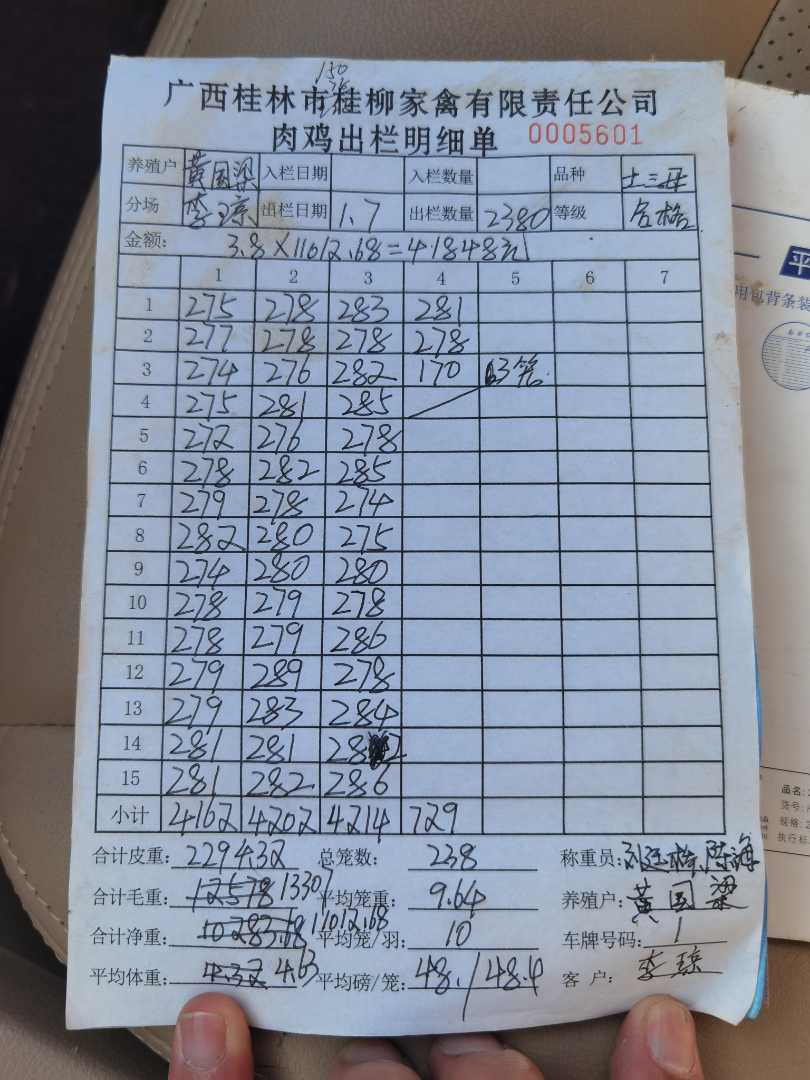 150
广西桂林市桂柳家禽有限责任公司
肉鸡出栏明细单 0005601
养殖户 黄国梁 入栏日期 入栏数量 品种 土三号
分场 李琼 出栏日期 1.7 出栏数量 2380 等级 合格
金额: 3.8×11012.68=41848元
1 2 3 4 5 6 7
1 275 278 283 281
2 277 278 278 278
3 274 276 282 170 3笼
4 275 281 285
5 272 276 278
6 278 282 285
7 279 278 274
8 282 280 275
9 274 280 280
10 278 279 278
11 278 279 286
12 279 289 278
13 279 283 284
14 281 281 282
15 281 282 286
小计 4162 4202 4214 729
合计皮重: 2294.32 总笼数: 238 称重员:
合计毛重: 12578 13307 平均笼重: 9.64 养殖户: 黄国梁
合计净重: 10283.68 11012.68 平均笼/羽: 10 车牌号码: 1
平均体重: 4.32 4.63 平均磅/笼: 48.1/48.4 客户: 李琼
平
用包背条装
品名:
货号:
规格:
执行标